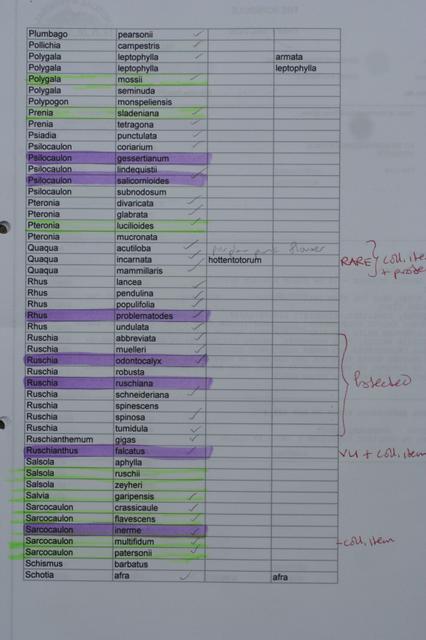 Plumbago pearsonii ✓
Pollichia campestris ✓
Polygala leptophylla ✓ armata
Polygala leptophylla leptophylla
Polygala mossii ✓
Polygala seminuda
Polypogon monspeliensis
Prenia sladeniana ✓
Prenia tetragona ✓
Psiadia punctulata ✓
Psilocaulon coriarium ✓
Psilocaulon gessertianum
Psilocaulon lindequistii
Psilocaulon salicornioides ✓
Psilocaulon subnodosum
Pteronia divaricata ✓
Pteronia glabrata ✓
Pteronia lucilioides ✓
Pteronia mucronata
Quaqua acutiloba ✓ flower
Quaqua incarnata ✓ hottentotorum RARE} coll. ite
Quaqua mammillaris ✓ +
Rhus lancea ✓
Rhus pendulina ✓
Rhus populifolia ✓
Rhus problematodes ✓
Rhus undulata ✓
Ruschia abbreviata ✓
Ruschia muelleri ✓
Ruschia odontocalyx ✓
Ruschia robusta
Ruschia ruschiana ✓
Protected
Ruschia schneideriana ✓
Ruschia spinescens
Ruschia spinosa ✓
Ruschia tumidula ✓
Ruschianthemum gigas ✓
Ruschianthus falcatus ✓ VU + coll. item
Salsola aphylla
Salsola ruschii
Salsola zeyheri
Salvia garipensis ✓
Sarcocaulon crassicaule ✓
Sarcocaulon flavescens ✓
Sarcocaulon inerme ✓
Sarcocaulon multifidum ✓ - coll. item
Sarcocaulon patersonii ✓
Schismus barbatus
Schotia afra ✓ afra